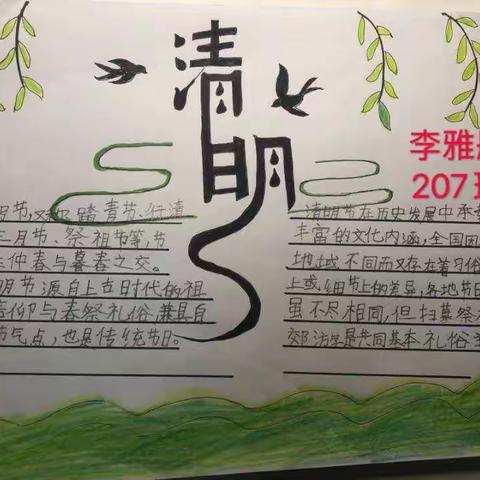 清明
李雅
207
节,又称踏青节、行清
三月节、祭祖节等,节
仲春与暮春之交。
明节源自上古时代的祖
信仰与春祭礼俗,兼具自
节气点,也是传统节日。
清明节在历史发展中承
丰富的文化内涵,全国因
地域不同而又存在着习俗
上或细节上的差异,各地节
虽不尽相同,但扫墓祭
郊游是共同基本礼俗